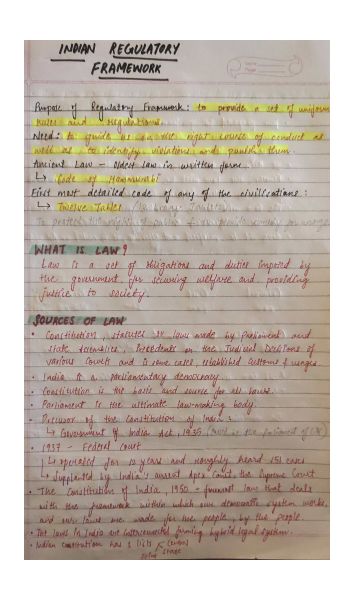 INDIAN REGULATORY
FRAMEWORK
Purpose of Regulatory Framework: to provide a set of uniform
rules and regulations
Need: to guide us on the right course of conduct as
well as to identify violations and punish them.
Ancient Law - Oldest law in written form
↳ Code of Hammurabi
First most detailed code of any of the civilisations:
↳ Twelve Tables
WHAT IS LAW?
Law is a set of obligations and duties imposed by
the government for securing welfare and providing
justice to society.
SOURCES OF LAW
• Constitution, statutes or laws made by Parliament and
state assemblies, Precedents or the Judicial Decisions of
various Courts and in some cases, established customs & usages.
• India is a parliamentary democracy.
• Constitution is the basis and source for all laws.
• Parliament is the ultimate law-making body.
• Precursor of the Constitution of India:
↳ Government of India Act, 1935 (
• 1937 - Federal Court
↳ operated for 12 years and roughly heard 151 cases
↳ Supplanted by India's current Apex Court, the Supreme Court
• The Constitution of India, 1950 - foremost law that deals
with the framework within which our democratic system works,
and our laws are made for the people, by the people.
• The laws in India are interconnected forming hybrid legal system.
• Indian Constitution has 3 lists
state